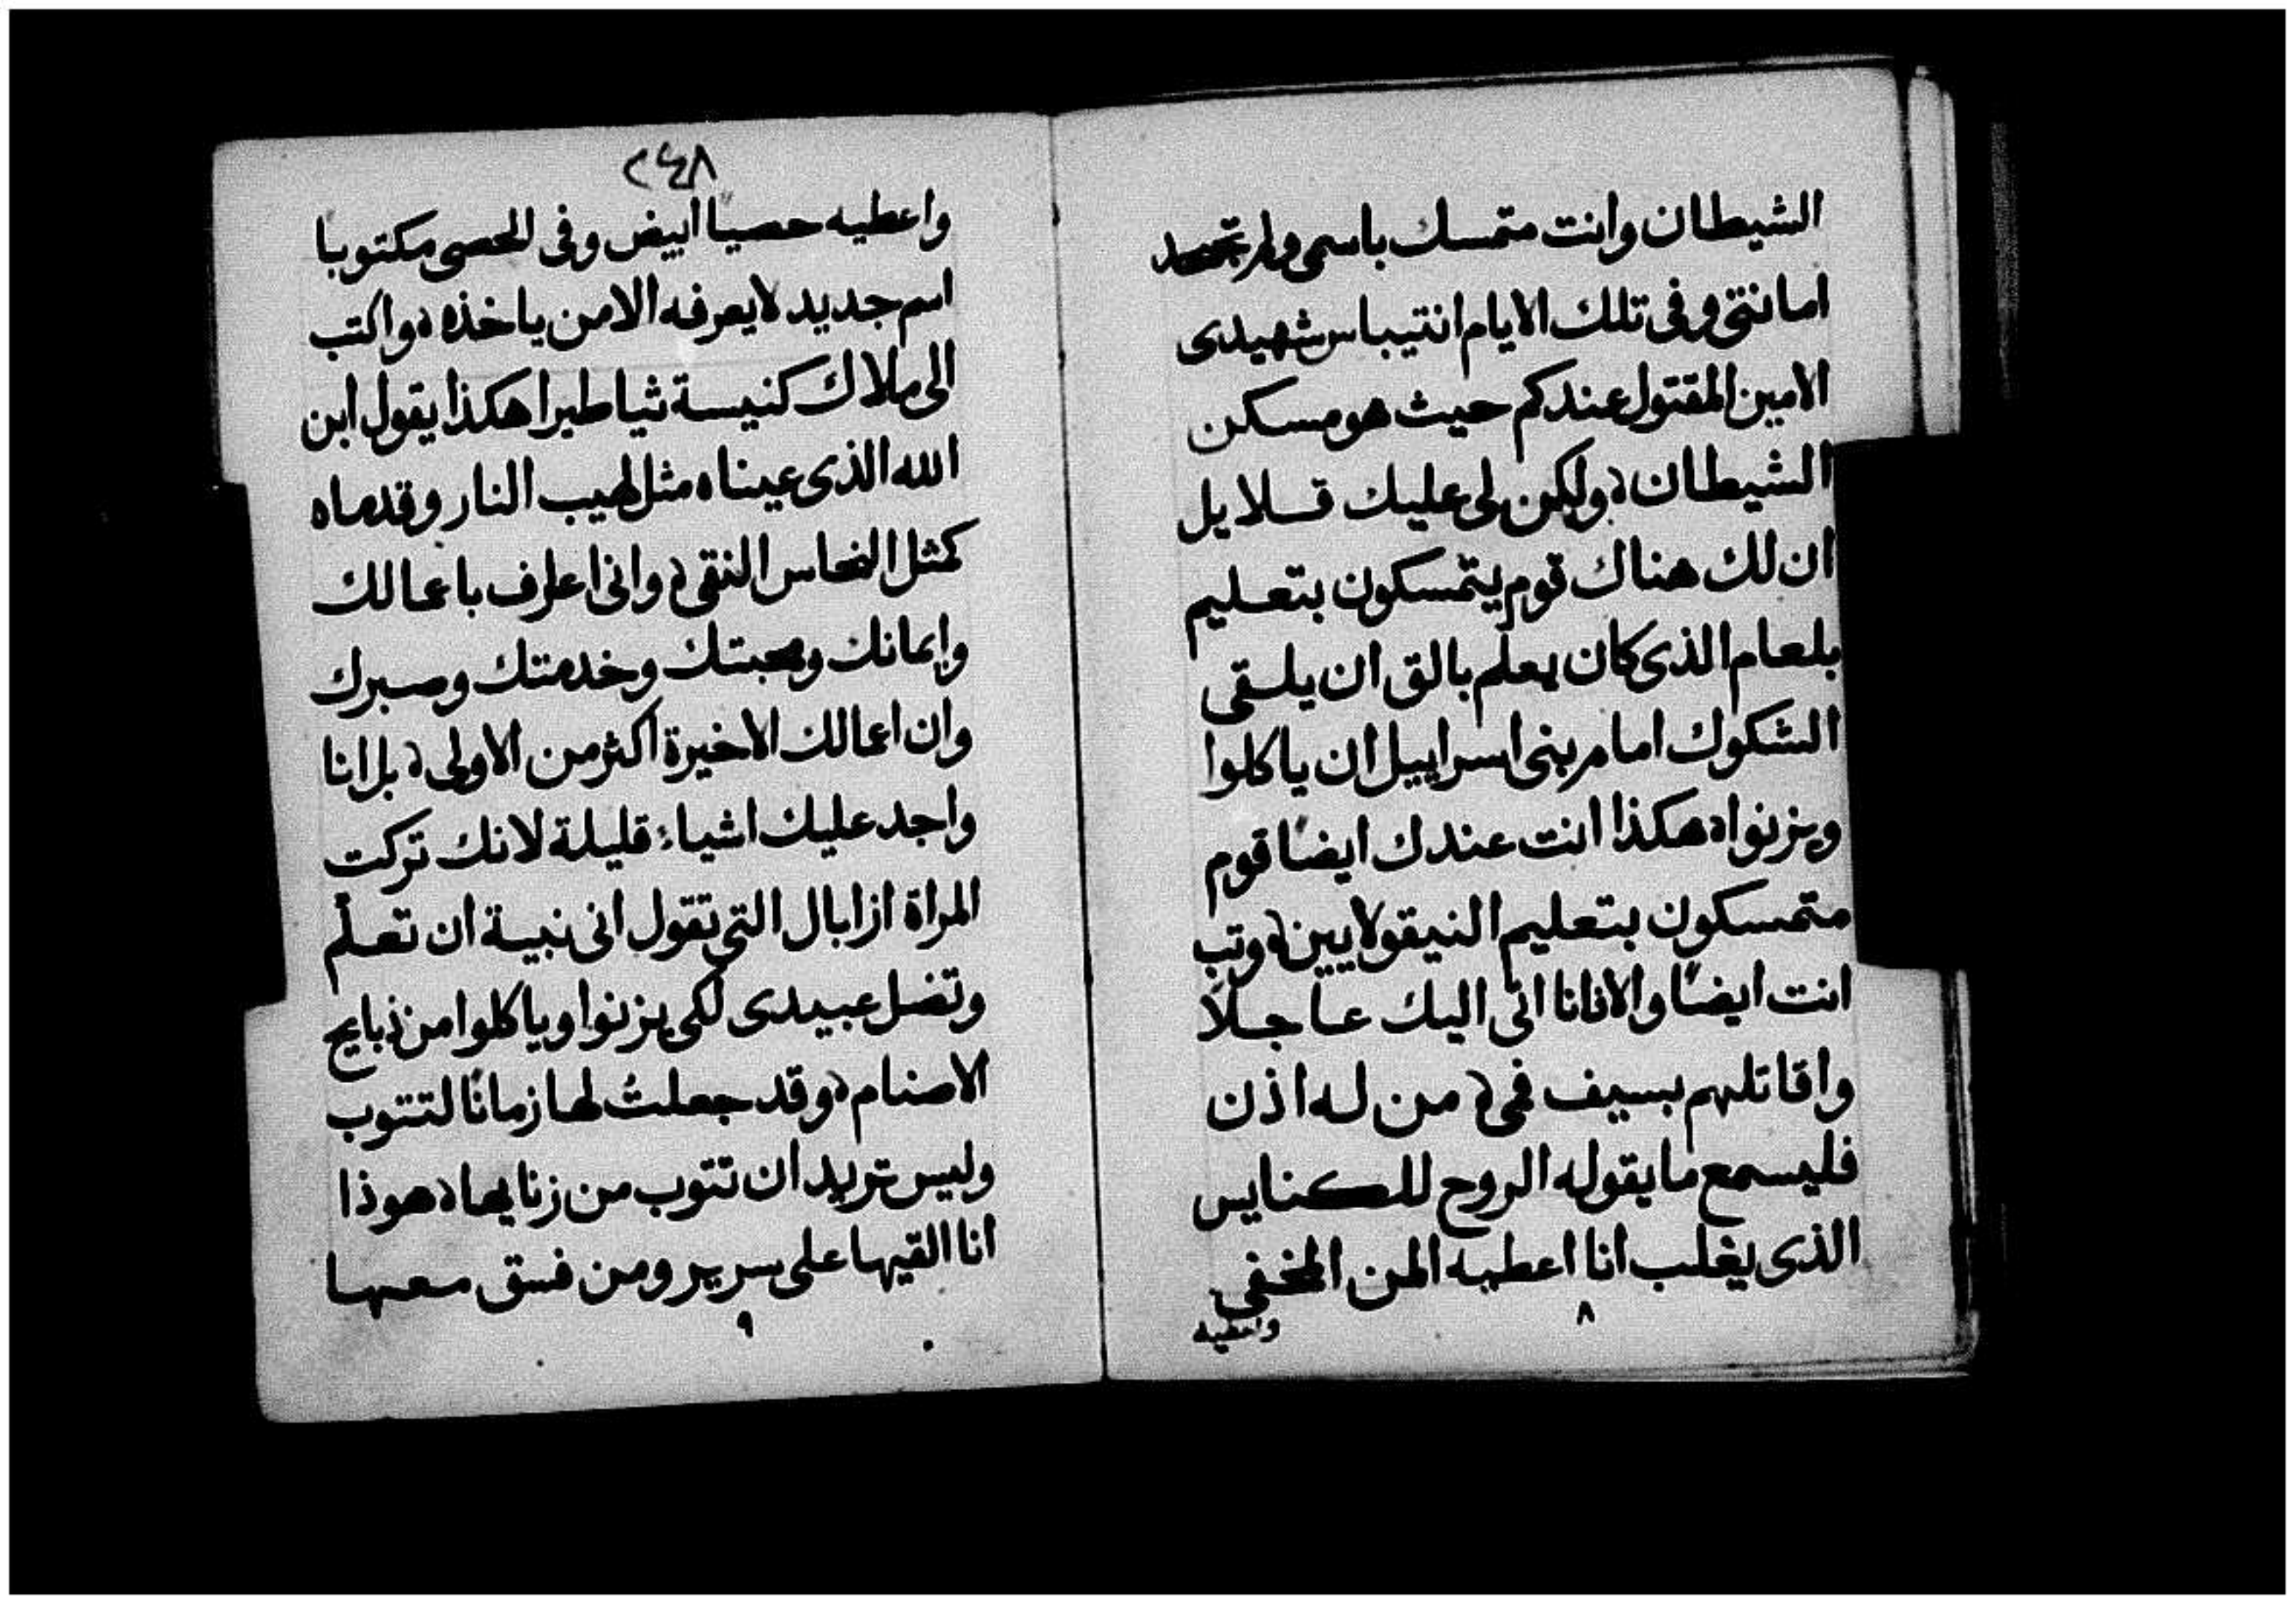 الشيطان وانت متمسك باسمى ولم تجحد
امانتى وفى تلك الايام انتيباس شهيدى
الامين المقتول عندكم حيث هو مسكن
الشيطان ولكن لى عليك قلايل
ان لك هناك قوم يتمسكون بتعليم
بلعام الذى كان يعلم بالق ان يلقى
الشكوك امام بنى اسراييل ان ياكلوا
ويزنوا هكذا انت عندك ايضًا قوم
متمسكون بتعليم النيقولايين وتب
انت ايضًا والا فانا اتى اليك عاجلا
واقاتلهم بسيف فمى من له اذن
فليسمع ما يقوله الروح للكنايس
الذى يغلب انا اعطيه المن المخفى
واعطيه
٨
٢٤٨
واعطيه حصيا ابيض وفى الحصى مكتوبا
اسم جديد لا يعرفه الا من ياخذه واكتب
الى ملاك كنيسة ثياطيرا هكذا يقول ابن
الله الذى عيناه مثل لهيب النار وقدماه
كمثل النحاس النقى وانى اعارف باعمالك
وايمانك ومحبتك وخدمتك وصبرك
وان اعمالك الاخيرة اكثر من الاولى بل انا
واجد عليك اشياء قليلة لانك تركت
المراة ازابال التى تقول انى نبية ان تعلّم
وتضل عبيدى لكى يزنوا وياكلوا من ذبايح
الاصنام وقد جعلتُ لها زمانًا لتتوب
وليس تريد ان تتوب من زنايها هوذا
انا القيها على سرير ومن فسق معها
٩